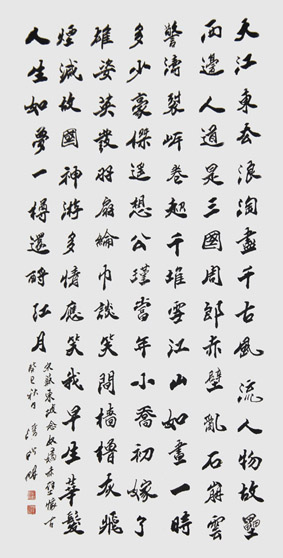 大江東去浪淘盡千古風流人物故壘
西邊人道是三國周郎赤壁亂石崩雲
驚濤裂岸卷起千堆雪江山如畫一時
多少豪傑遙想公瑾當年小喬初嫁了
雄姿英發羽扇綸巾談笑間檣櫓灰飛
煙滅故國神游多情應笑我早生華髮
人生如夢一樽還酹江月
宋蘇東坡念奴嬌赤壁懷古
癸巳秋月